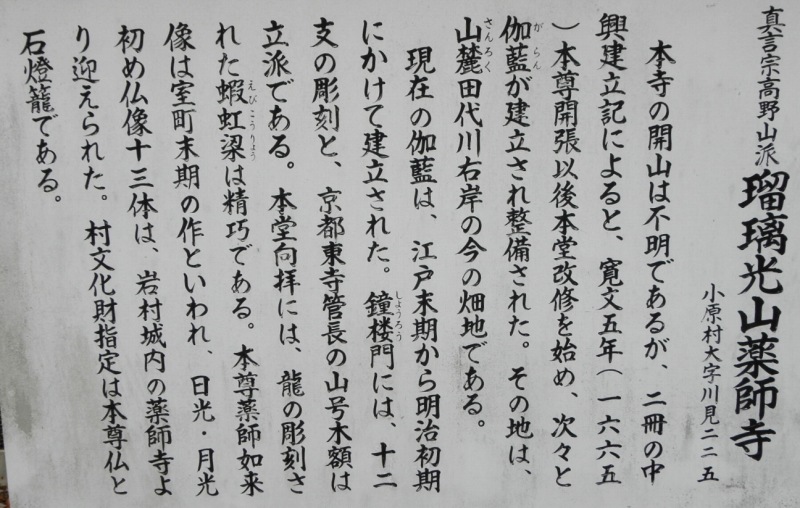 真言宗高野山派 瑠璃光山薬師寺
小原村大字川見二二五
本寺の開山は不明であるが、二冊の中
興建立記によると、寛文五年(一六六五
)本尊開張以後本堂改修を始め、次々と
伽藍が建立され整備された。その地は、
がらん
山麓田代川右岸の今の畑地である。
さんろく
現在の伽藍は、江戸末期から明治初期
にかけて建立された。鐘楼門には、十二
しょうろう
支の彫刻と、京都東寺管長の山号木額は
立派である。本堂向拝には、龍の彫刻さ
れた蝦虹梁は精巧である。本尊薬師如来
えびこうりょう
像は室町末期の作といわれ、日光・月光
初め仏像十三体は、岩村城内の薬師寺よ
り迎えられた。村文化財指定は本尊仏と
石燈籠である。